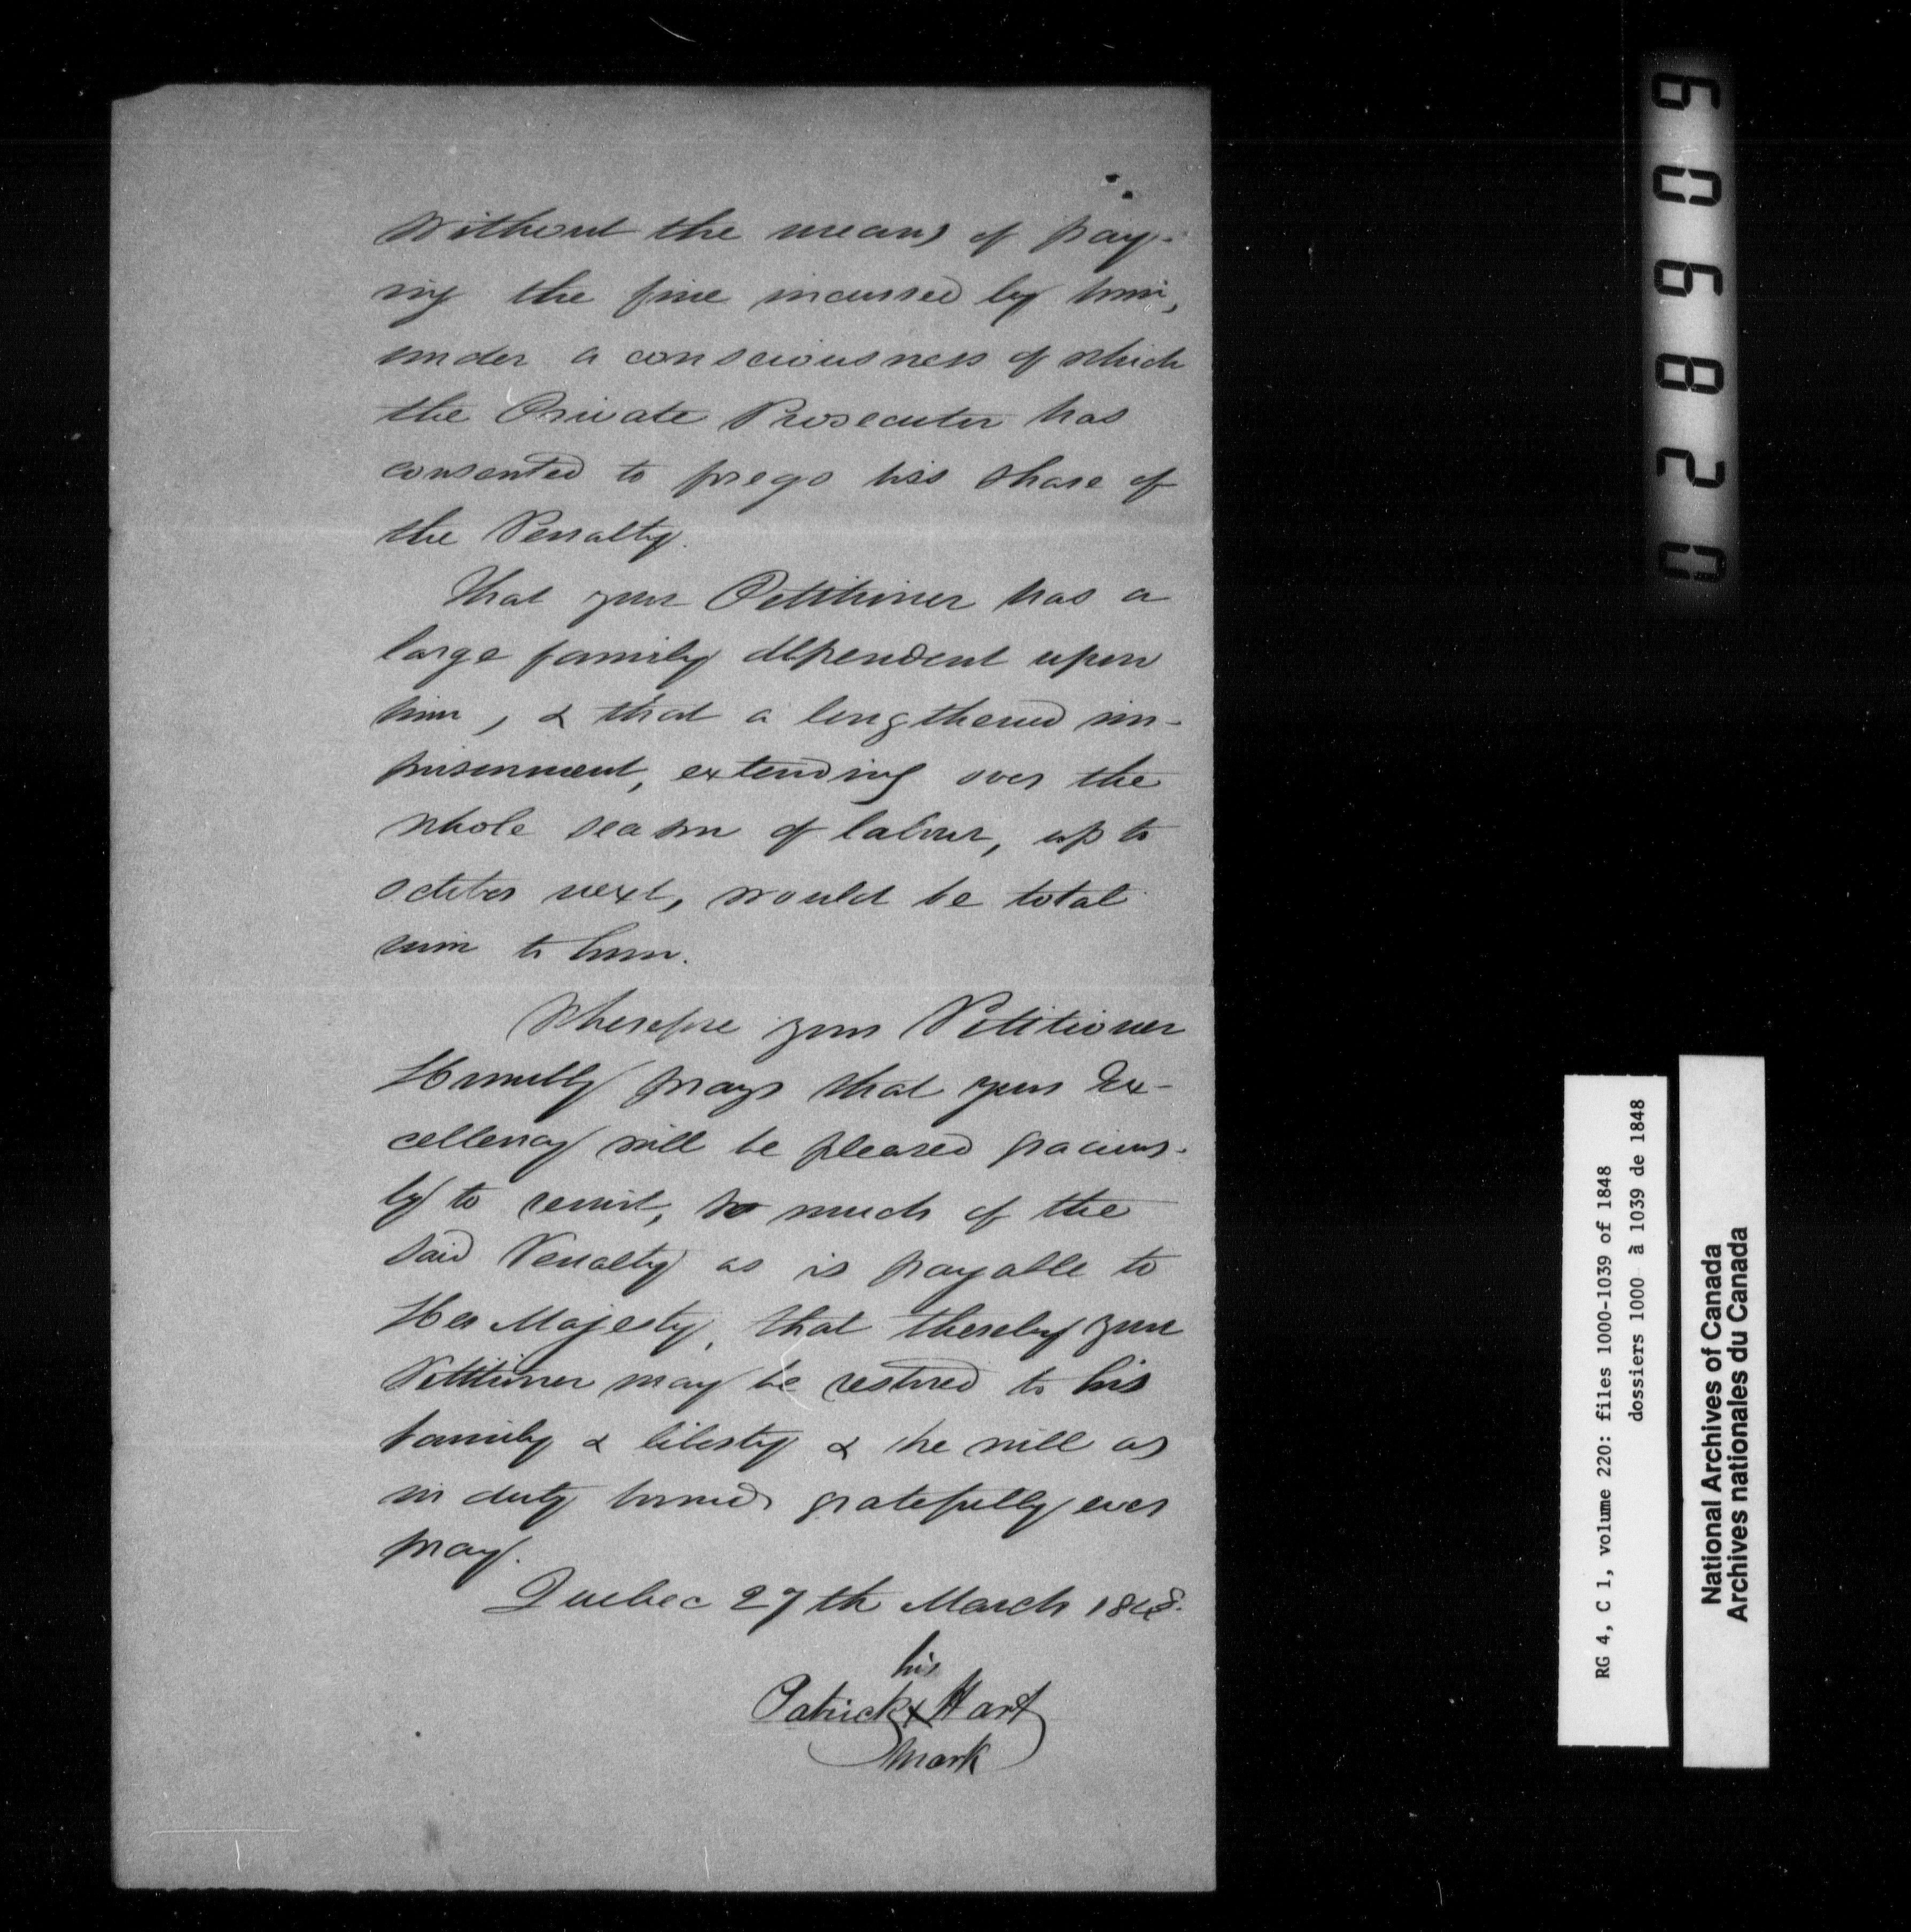 without the means of pay-
ing the fine incurred by him,
under a consciousness of which
the Private Prosecutor has
consented to forego his share of
the Penalty.
That your Petitioner has a
large family dependent upon
him, & that a lengthened im-
prisonment, extending over the
whole season of labour, up to
october next, would be total
ruin to him.
Wherefore your Petitioner
Humbly prays that your Ex-
cellency will be pleased gracious-
ly to remit, so much of the
said Penalty as is payable to
Her Majesty, that thereby your
Petitioner may be restored to his
family & liberty & he will as
in duty bound gratefully ever
pray.
Quebec 27th March 1848.
his
Patrick x Hart
mark
028609
RG 4, C 1, volume 220: files 1000-1039 of 1848
dossiers 1000 à 1039 de 1848
National Archives of Canada
Archives nationales du Canada